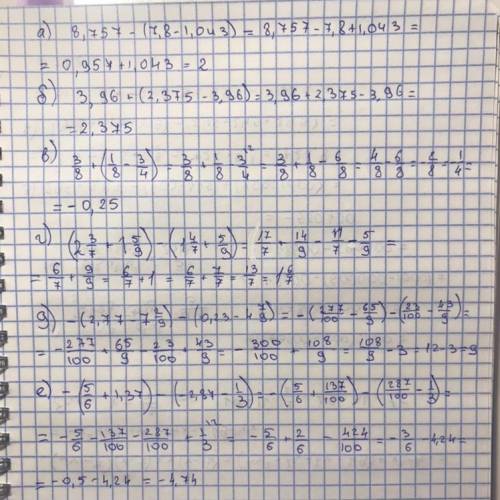 а) 8,757 - (7,8 - 1,043) = 8,757 - 7,8 + 1,043 =
= 0,957 + 1,043 = 2
б) 3,96 + (2,375 - 3,96) = 3,96 + 2,375 - 3,96 =
= 2,375
в) 3/8 + (1/8 - 3/4) = 3/8 + 1/8 - 3/4 = 3/8 + 1/8 - 6/8 = 4/8 - 6/8 = - 2/8 = - 1/4 =
= - 0,25
г) (2 3/7 + 1 5/9) - (1 4/7 + 5/9) = 17/7 + 14/9 - 11/7 - 5/9 =
= 6/7 + 9/9 = 6/7 + 1 = 6/7 + 7/7 = 13/7 = 1 6/7
д) - (2,77 - 7 2/9) - (0,23 - 4 7/9) = - (277/100 - 65/9) - (23/100 - 43/9) =
= - 277/100 + 65/9 - 23/100 + 43/9 = - 300/100 + 108/9 = 108/9 - 3 = 12 - 3 = 9
е) - (5/6 + 1,37) - (-2,87 - 1/3) = - (5/6 + 137/100) - (287/100 - 1/3) =
= - 5/6 - 137/100 - 287/100 + 1/3 = - 5/6 + 2/6 - 424/100 = - 3/6 - 4,24 =
= - 0,5 - 4,24 = - 4,74